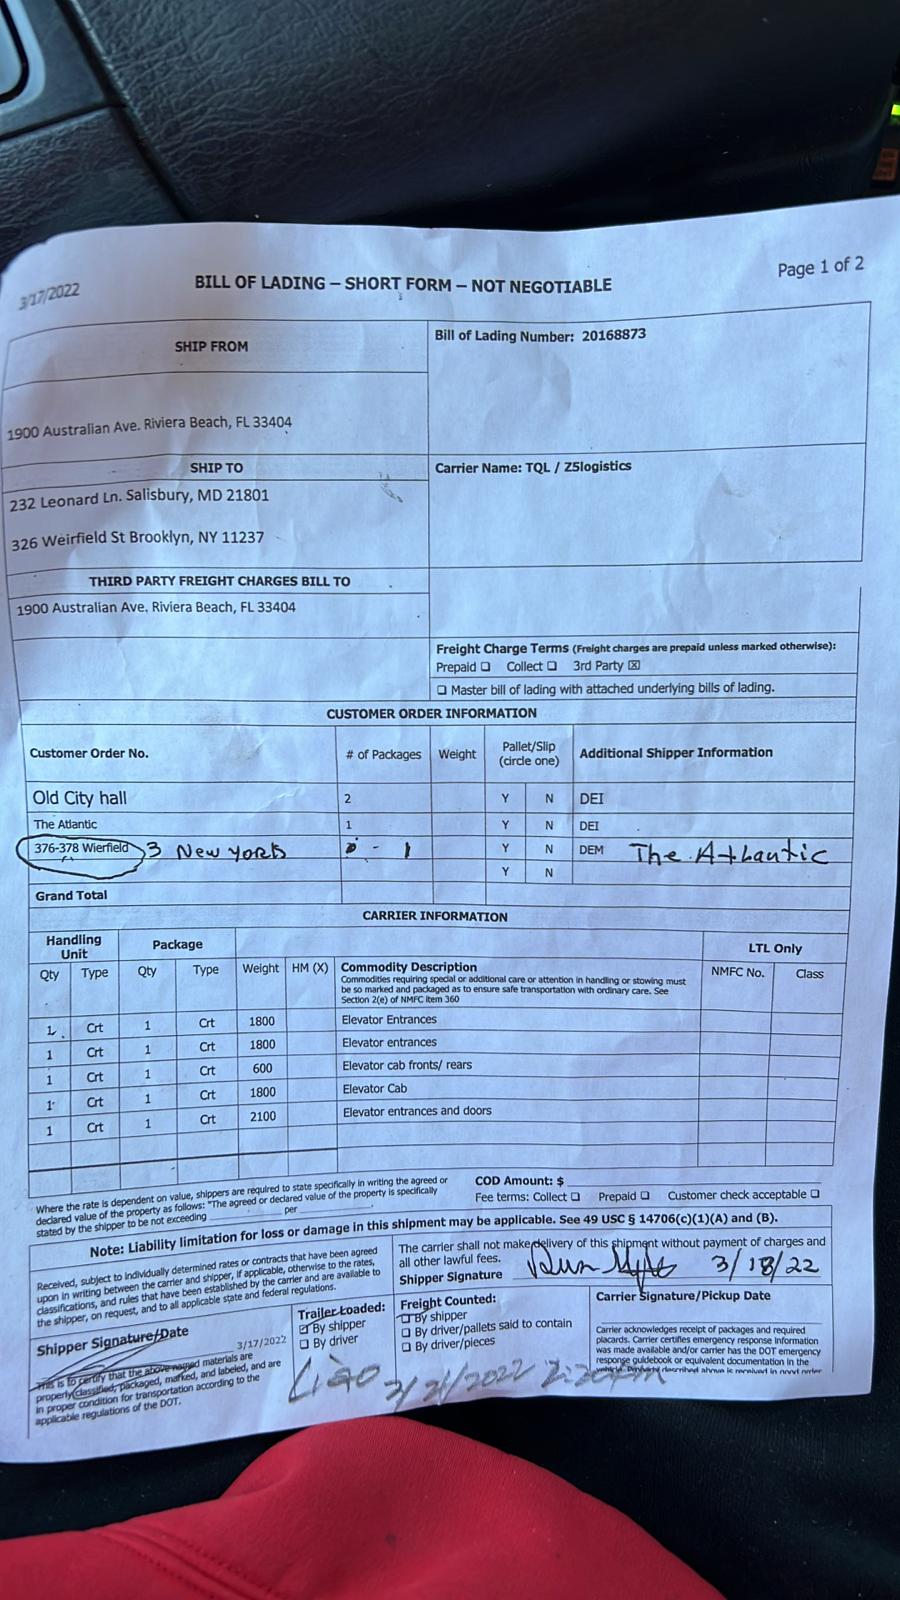 3/17/2022
BILL OF LADING – SHORT FORM – NOT NEGOTIABLE
Page 1 of 2
SHIP FROM
Bill of Lading Number: 20168873
1900 Australian Ave. Riviera Beach, FL 33404
SHIP TO
Carrier Name: TQL / Z5logistics
232 Leonard Ln. Salisbury, MD 21801
326 Weirfield St Brooklyn, NY 11237
THIRD PARTY FREIGHT CHARGES BILL TO
1900 Australian Ave. Riviera Beach, FL 33404
Freight Charge Terms (Freight charges are prepaid unless marked otherwise):
Prepaid ☐ Collect ☐ 3rd Party ☒
☐ Master bill of lading with attached underlying bills of lading.
CUSTOMER ORDER INFORMATION
Customer Order No. # of Packages Weight Pallet/Slip (circle one) Additional Shipper Information
Old City hall 2 Y N DEI
The Atlantic 1 Y N DEI
376-378 Wierfield 3 New York - 1 Y N DEM The Atlantic
Y N
Grand Total
CARRIER INFORMATION
Handling Unit Package LTL Only
Qty Type Qty Type Weight HM (X) Commodity Description NMFC No. Class
Commodities requiring special or additional care or attention in handling or stowing must
be so marked and packaged as to ensure safe transportation with ordinary care. See
Section 2(e) of NMFC item 360
1 Crt 1 Crt 1800 Elevator Entrances
1 Crt 1 Crt 1800 Elevator entrances
1 Crt 1 Crt 600 Elevator cab fronts/ rears
1 Crt 1 Crt 1800 Elevator Cab
1 Crt 1 Crt 2100 Elevator entrances and doors
Where the rate is dependent on value, shippers are required to state specifically in writing the agreed or
declared value of the property as follows: "The agreed or declared value of the property is specifically
stated by the shipper to be not exceeding per
COD Amount: $
Fee terms: Collect ☐ Prepaid ☐ Customer check acceptable ☐
Note: Liability limitation for loss or damage in this shipment may be applicable. See 49 USC § 14706(c)(1)(A) and (B).
Received, subject to individually determined rates or contracts that have been agreed
upon in writing between the carrier and shipper, if applicable, otherwise to the rates,
classifications, and rules that have been established by the carrier and are available to
the shipper, on request, and to all applicable state and federal regulations.
The carrier shall not make delivery of this shipment without payment of charges and
all other lawful fees.
Shipper Signature 3/18/22
Shipper Signature/Date
3/17/2022
This is to certify that the above named materials are
properly classified, packaged, marked, and labeled, and are
in proper condition for transportation according to the
applicable regulations of the DOT.
Trailer Loaded:
☑ By shipper
☐ By driver
Freight Counted:
☐ By shipper
☐ By driver/pallets said to contain
☐ By driver/pieces
Carrier Signature/Pickup Date
Carrier acknowledges receipt of packages and required
placards. Carrier certifies emergency response information
was made available and/or carrier has the DOT emergency
response guidebook or equivalent documentation in the
vehicle. Property described above is received in good order
3/21/2022